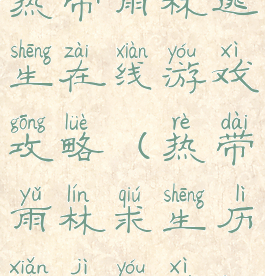 热带雨林逃
shēng zài xiàn yóu xì
生在线游戏
gōng lüè rè dài
攻略(热带
yǔ lín qiú shēng lì
雨林求生历
xiǎn jì yóu xì